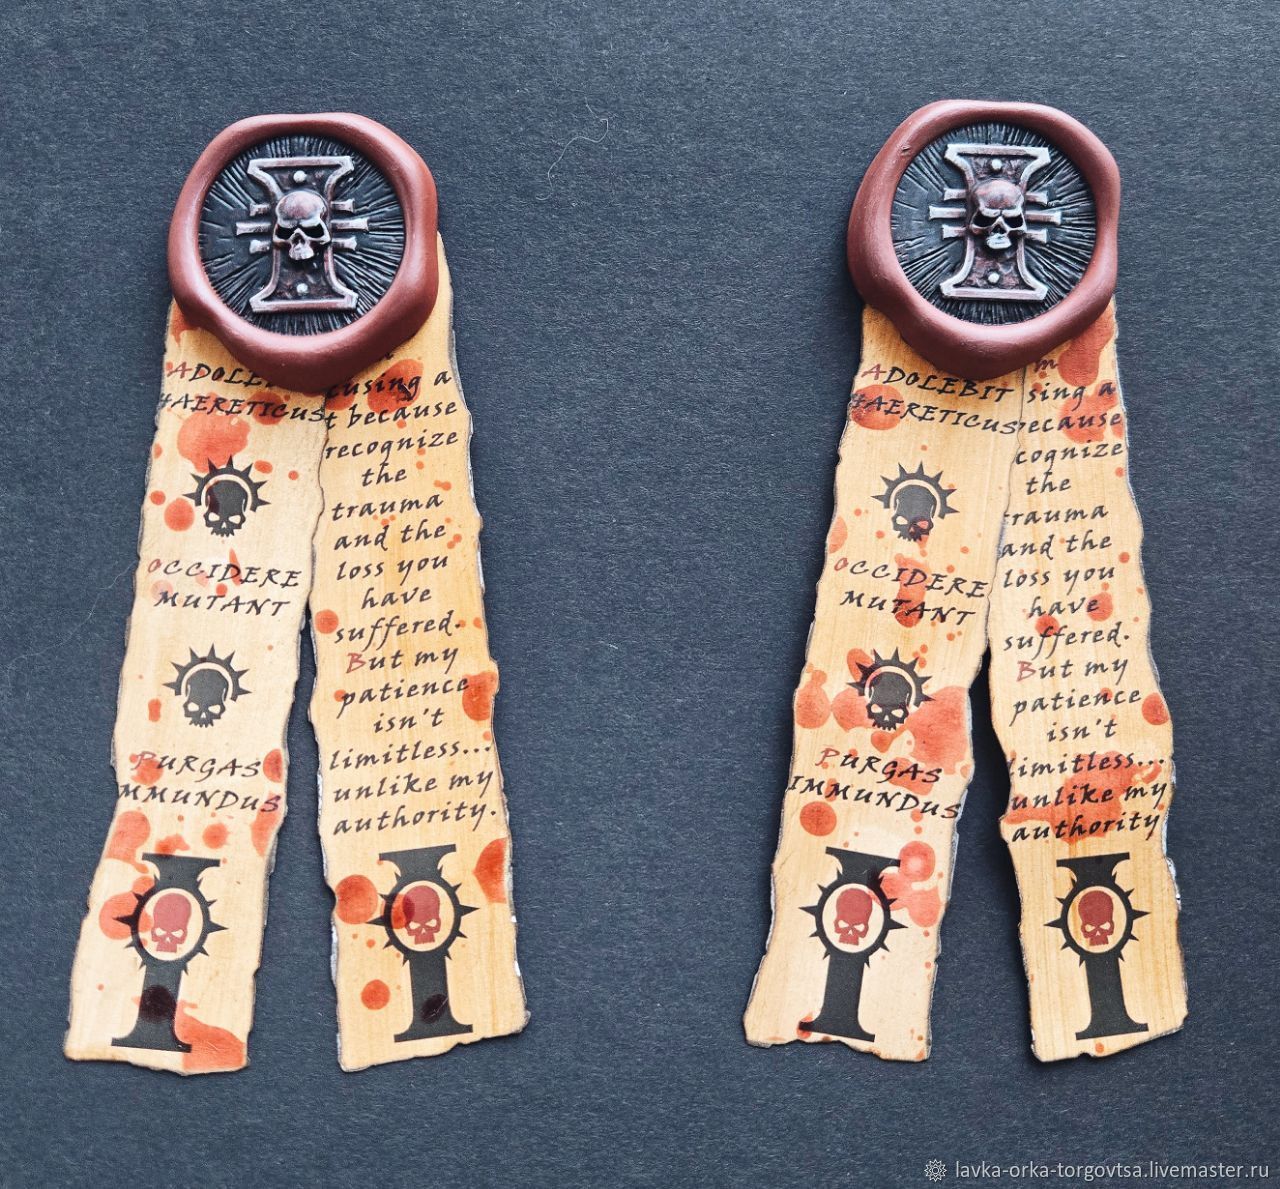 ADOLEB
HAERETICUS
OCCIDERE
MUTANT
PURGAS
MMUNDUS
cusing a
t because
recognize
the
trauma
and the
loss you
have
suffered.
But my
patience
isn't
limitless...
unlike my
authority.
ADOLEBIT
HAERETICUS
OCCIDERE
MUTANT
PURGAS
IMMUNDUS
m
sing a
ecause
cognize
the
rauma
and the
loss you
have
suffered.
But my
patience
isn't
limitless...
unlike my
authority
lavka-orka-torgovtsa.livemaster.ru